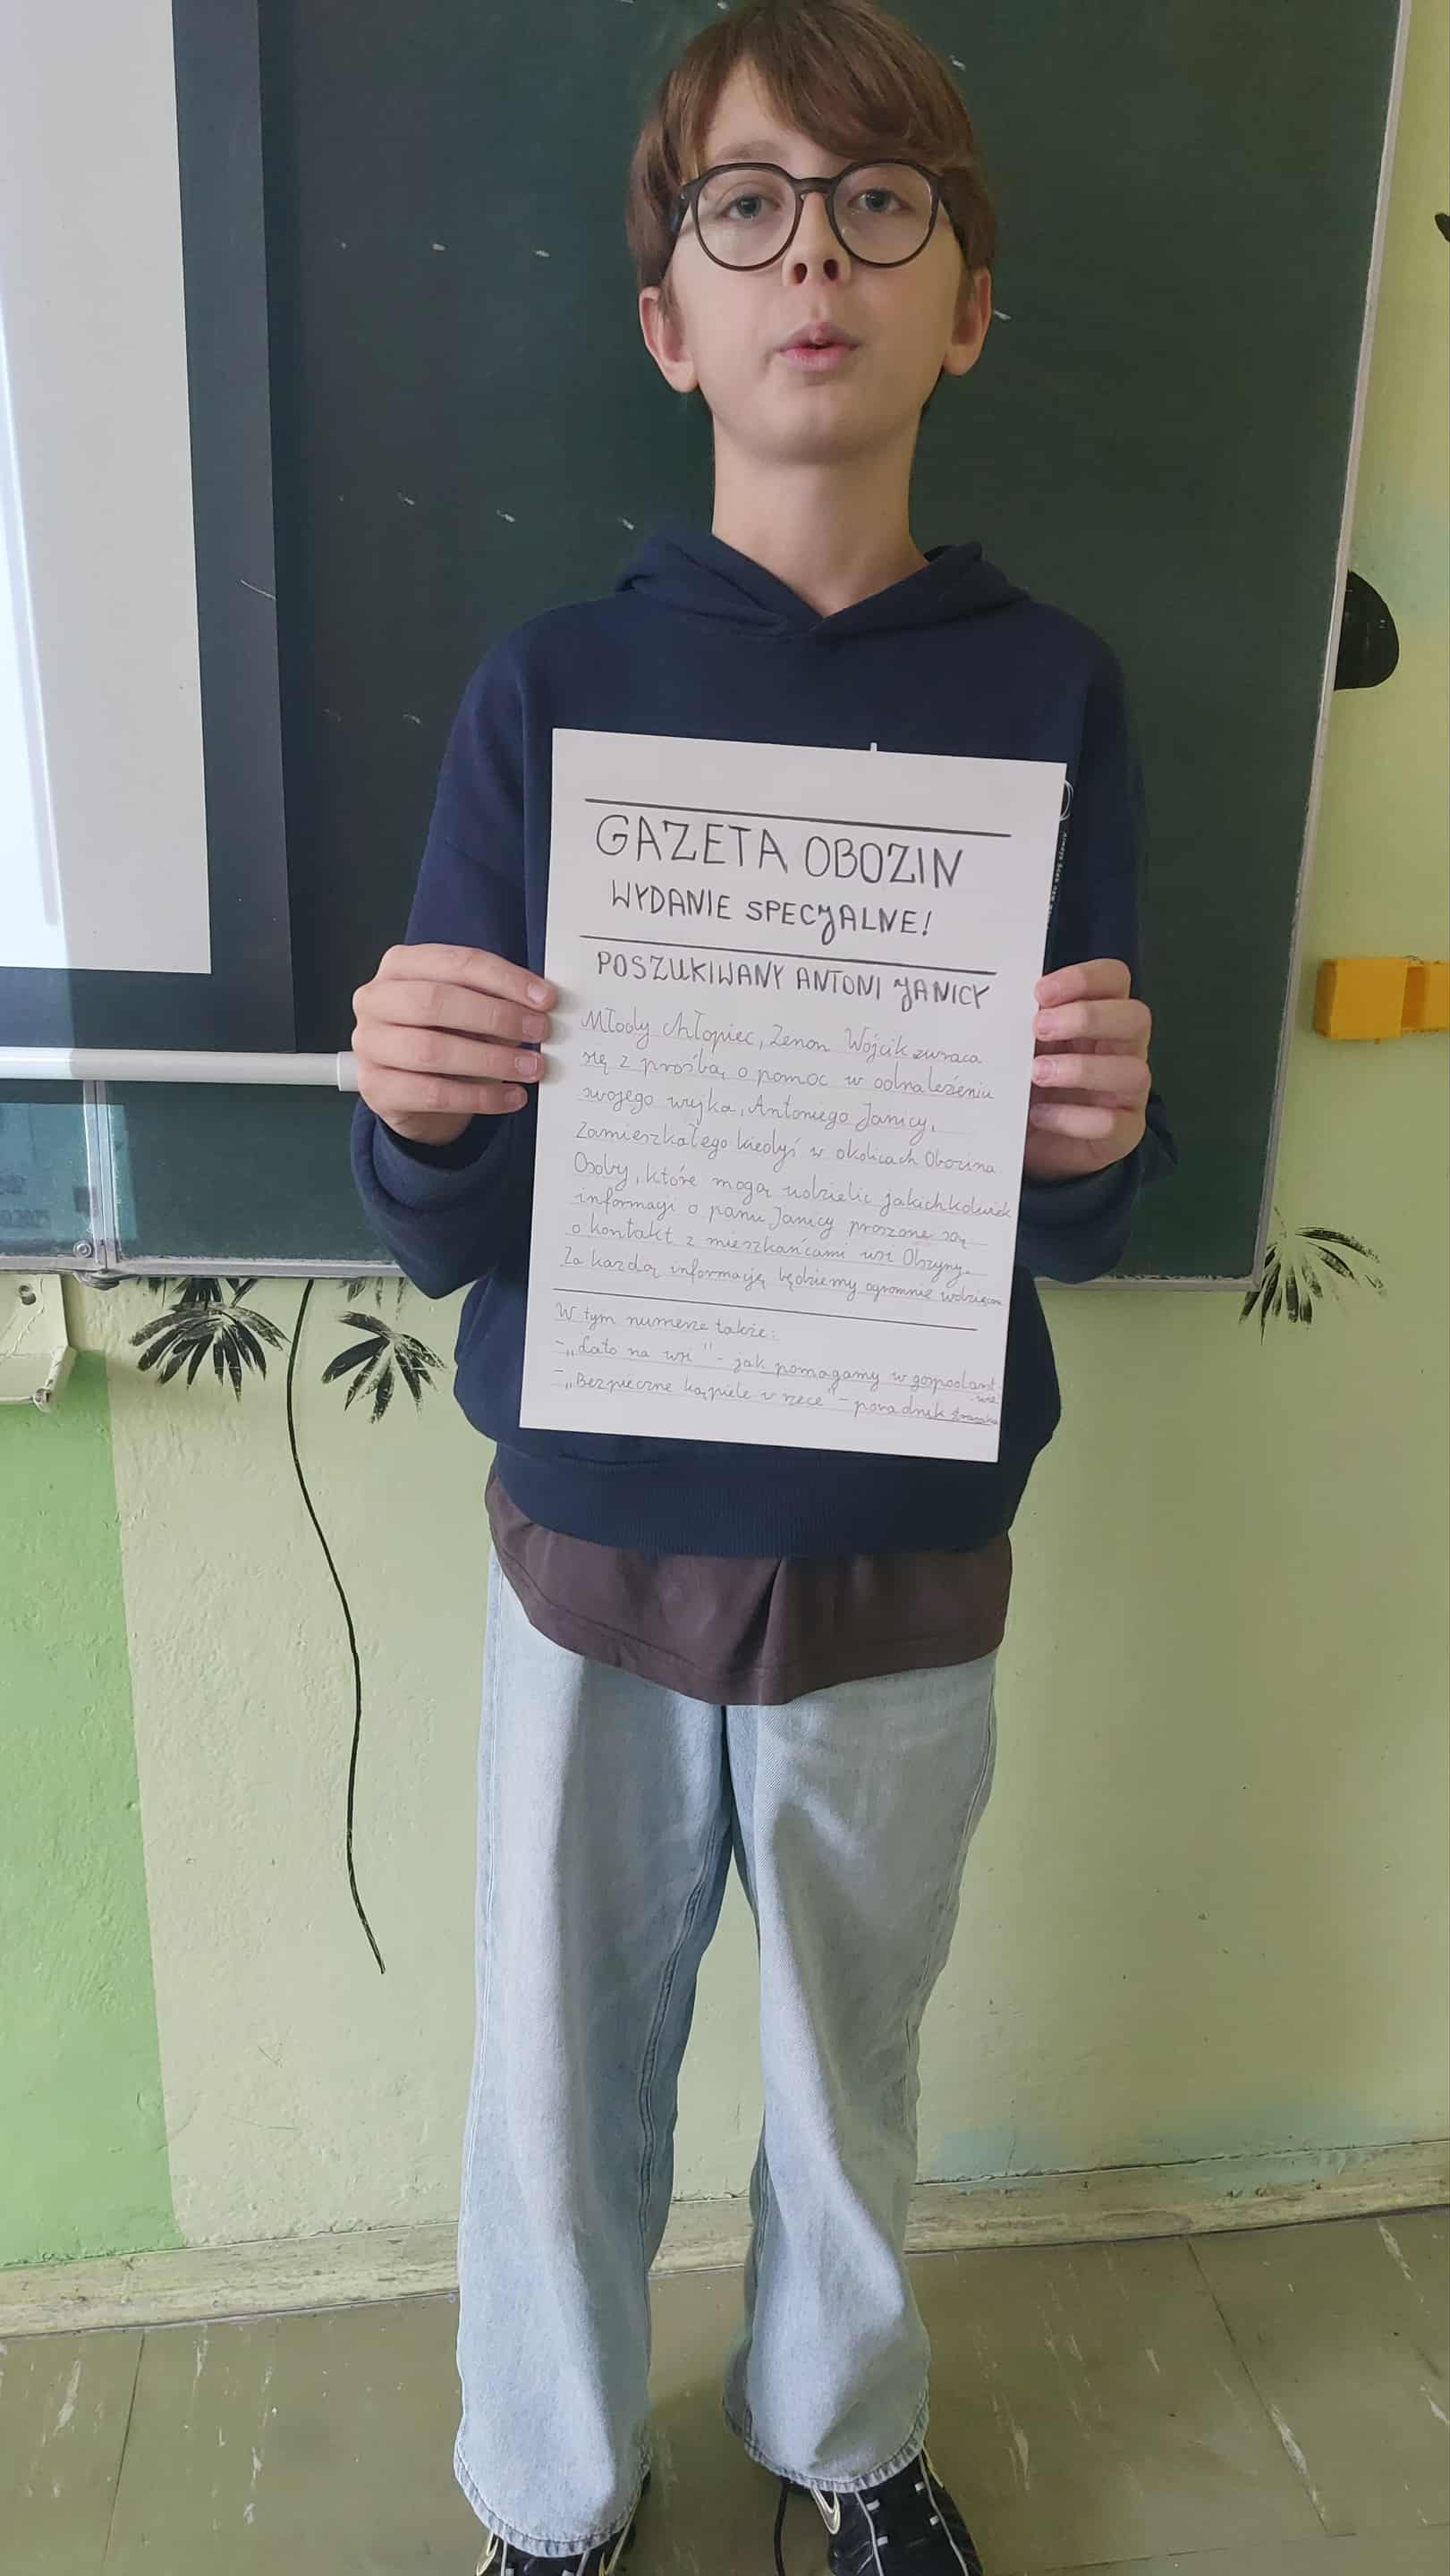 GAZETA OBOZIN
WYDANIE SPECJALNE!
POSZUKIWANY ANTONI JANICY
Młody chłopiec, Zenon Wójcik zwraca
się z prośbą o pomoc w odnalezieniu
swojego wujka, Antoniego Janicy,
Zamieszkałego kiedyś w okolicach Obozina
Osoby, które mogą udzielić jakichkolwiek
informacji o panu Janicy proszone są
o kontakt z mieszkańcami wsi Olszyny.
Za każdą informację będziemy ogromnie wdzięczni
W tym numerze także:
- „Lato na wsi" - jak pomagamy w gospodarst-
-wie
- „Bezpieczne kąpiele w rzece" - poradnik strażaka